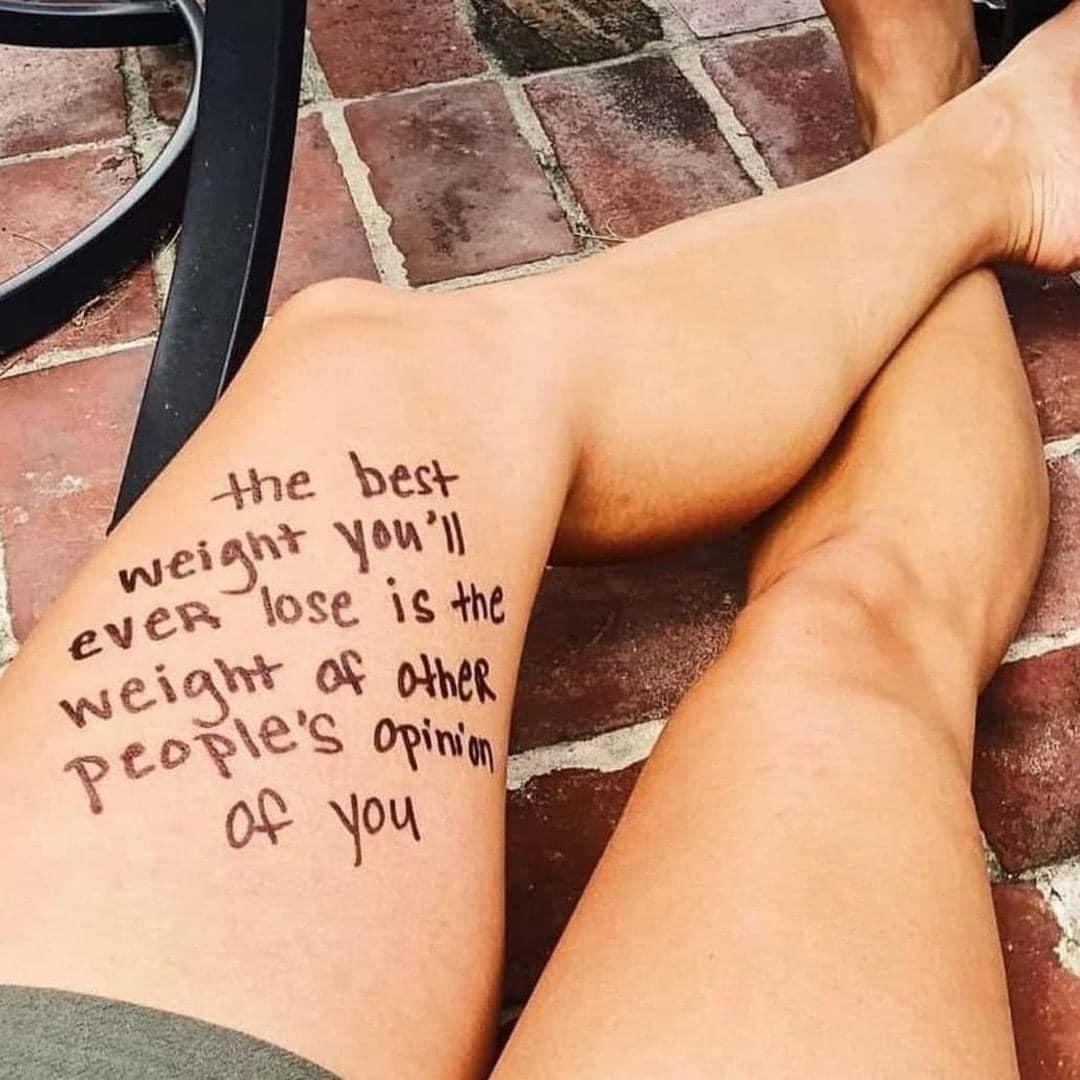 the best
weight you'll
ever lose is the
weight of other
people's opinion
of you